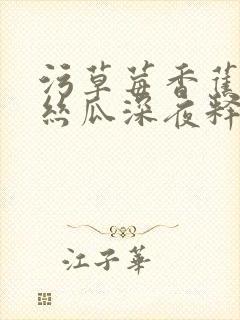 污草莓香蕉
丝瓜深夜释
江子華